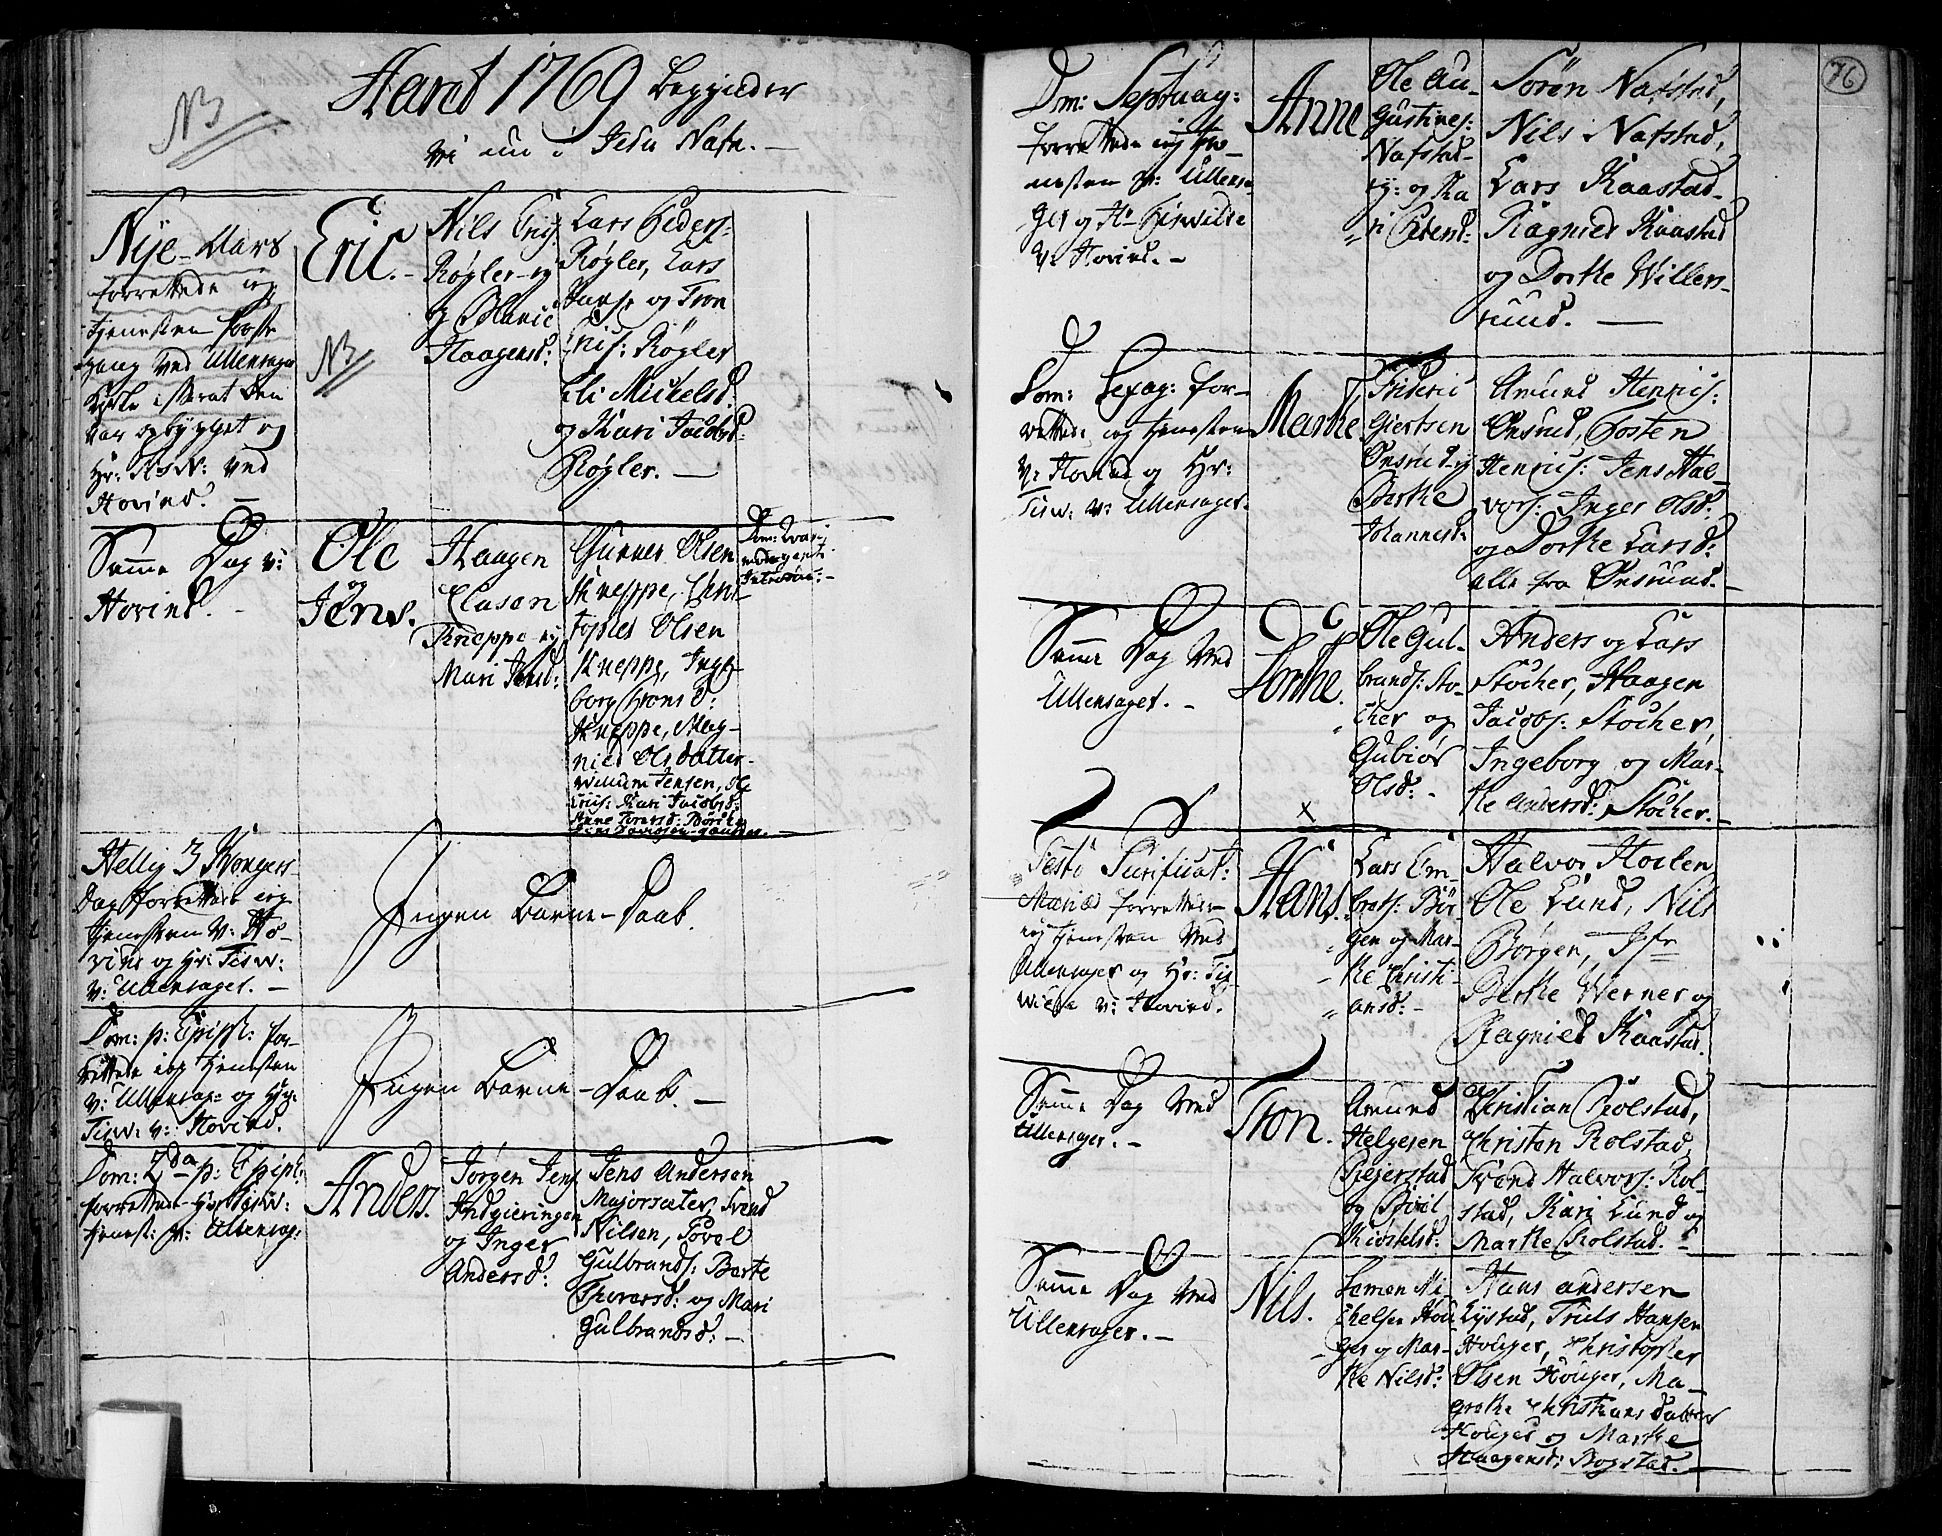 NB
Aaret 1769 begynder
vi nu i Jesu Nafn. —
Nye-Aars
forrettede ieg
tjenesten første
gang ved Ullensager
Kirke efterat den
var opbygget og
Hr: Tisw: ved
Hovind. —
Eric. -
NB
Nils Erics:
Røgler og
Marie
Haagensd:
Lars Peders:
Røgler, Lars
Hanss: og Tron
Erics: Røgler
Eli Michelsd:
og Kari Jacobsd:
Røgler. —
Samme Dag v:
Hovind. -
Ole
og
Jens.
Haagen
Clasen
Kneppe og
Mari Jensd:
Gunner Olsen
Kneppe, Chri-
stopher Olsen
Kneppe, Inge-
borg
Kneppe, Mag-
nild Olsdatter
Willum Jensen, Ole
Erics: Kari Jacobsd:
Anne
Dom:
Hellig 3 Kongers
Dag forrettede ieg
tjenesten v: Ho-
vind og Hr: Tisw:
v: Ullensager. —
Ingen Barne-Daab.
Dom: p: Epiph: for-
rettede ieg tjenesten
v: Ullensag: og Hr:
Tisw: v: Hovind.
Ingen Barne-Daab. —
Dom: 2da p: Epiph:
forrettede Hr: Tisw:
tjenest: v: Ullensag:
Anders.
Jørgen Jens:
Andgieringen
og Inger
Andersd:
Jens Andersen
Majorsæter, Svend
Nilsen, Povel
Gulbrands: Berte
Thorersd: og Mari
Gulbrandsd: —
76
Dm: Septuag:
forrettede ieg tie-
nesten v: Ullensa-
ger og Hr Tiswilde
v: Hovind. -
Anne
Ole Au-
gustines:
Nafstad-
ey: og Ka-
ri Pedersd:
Sørøn Nafstad,
Nils Nafstad,
Lars Kaastad
Ragnild Kaastad
og Dorthe Willers-
rund. —
Dom: Sexag: for-
rettede ieg tjenesten
v: Hovind og Hr:
Tisw: v: Ullensager.
Marthe
Frideric
Giertsen
Ønsrud-ey
Berthe
Johannesd:
Amund Henrics:
Ønsrud, Tosten
Henrics: Jens Hal-
vors: Inger Olsd:
og Dorthe Larsd:
alle fra Ønsrund. —
Samme Dag ved
Ullensager. -
Dorthe.
Ole Gul-
brands: Sto-
cher og
Gubiør
Olsd: -
Anders og Lars
Stocher, Haagen
Jacobs: Stocher,
Ingeborg og Mar-
the Andersd: Stocher. —
x
Festo Purificat:
Mariæ forrettede
ieg tjenesten ved
Ullensager og Hr: Tis-
wilde v: Hovind.
Hans.
Lars Em-
brets: Bør-
gen og Mar-
the Christi-
ansd: -
Halvor Hoelen
Ole Lund, Nils
Børgen, Jfr
Berthe Werner og
Ragnild Kaastad.
Samme Dag ved
Ullensager. -
Tron.
Amund
Helgesen
Rejerstad
og Siril
Kiøstelsd:
Christian Rolstad,
Christen Rolstad,
Svend Halvors: Rol-
stad, Kari Lund og
Marthe Rolstad. -
Samme Dag ved
Ullensager. -
Nils.
Simen Mi-
chelsen Hou-
ger og Mar-
the Nilsd:
Hans Andersen
Lystad, Truls Hansen
Houger, Christopher
Olsen Houger, Ma-
grethe Christiansdatter
Houger og Marthe
Haagensd: Bogstad. —